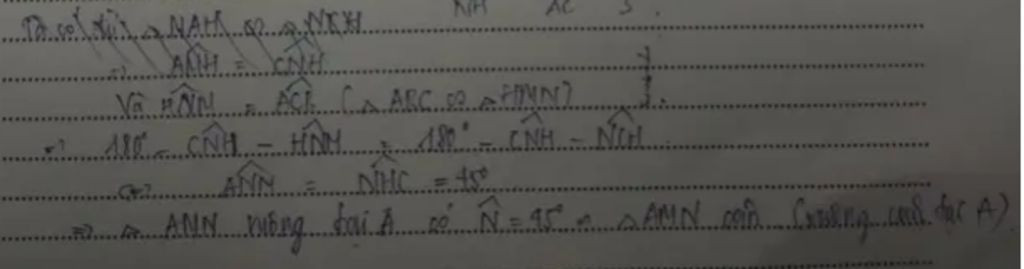 NH AC 5
Ta có △NAH ∽ △NCH
=> ANH = CNH
Và HNM = ACB (△ABC ∽ △HMN)
=> 180° - CNH - HNM = 180° - CNH - NCH
<=> ANM = NHC = 45°
=> △AMN vuông tại A có N̂ = 45° △AMN cân (vuông cân tại A)